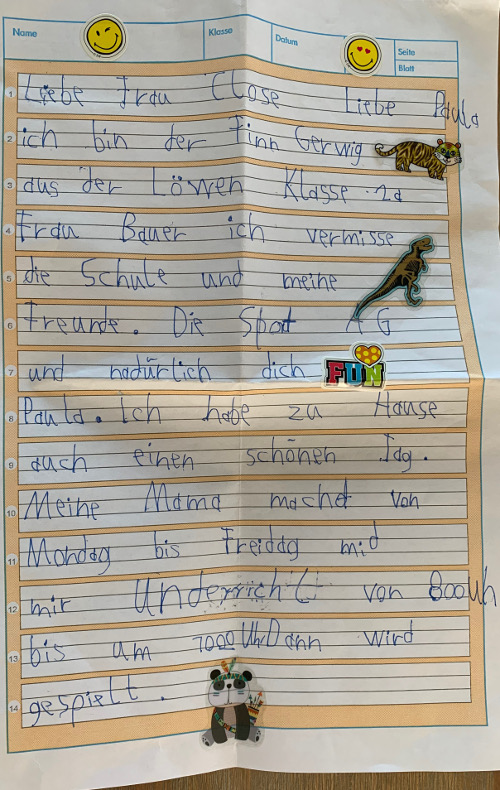 Name
Klasse
Datum
Seite
Blatt
1 Liebe Frau Close Liebe Paula
2 ich bin der Finn Gerwig
3 aus der Löwen Klasse 2a
4 Frau Bauer ich vermisse
5 die Schule und meine
6 Freunde. Die Sport AG
7 und nadürlich dich FUN
8 Paula. ich habe zu Hause
9 auch einen schönen Tag.
10 Meine Mama machet von
11 Mondag bis Freidag mid
12 mir Underricht von 800uh
13 bis um 1000 Uhr Dann wird
14 gespielt.